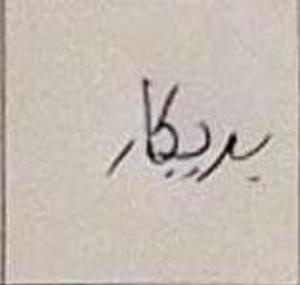 بدیکار